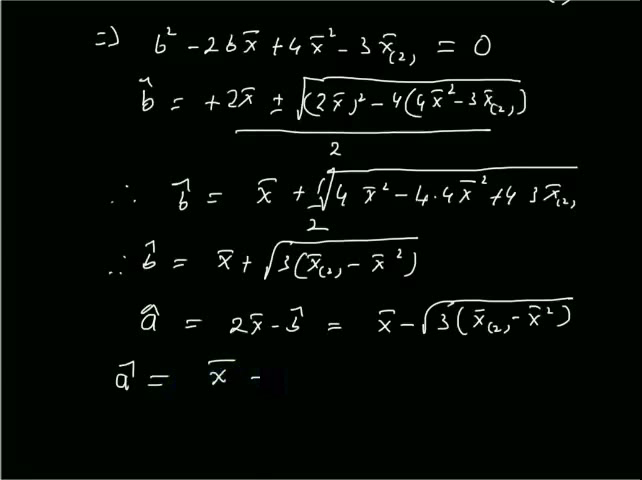 =) b² - 2b x̄ + 4x̄² - 3x̄₍₂, = 0
b̂ = + 2x̄ ± √((2x̄)² - 4(4x̄² - 3x̄₍₂,)
2
∴ b̂ = x̄ + ½√(4 x̄² - 4·4x̄² + 4 3x̄₍₂,
∴ b̂ = x̄ + √(3(x̄₍₂, - x̄²)
â = 2x̄ - b̂ = x̄ - √(3(x̄₍₂, - x̄²)
â = x̄ -